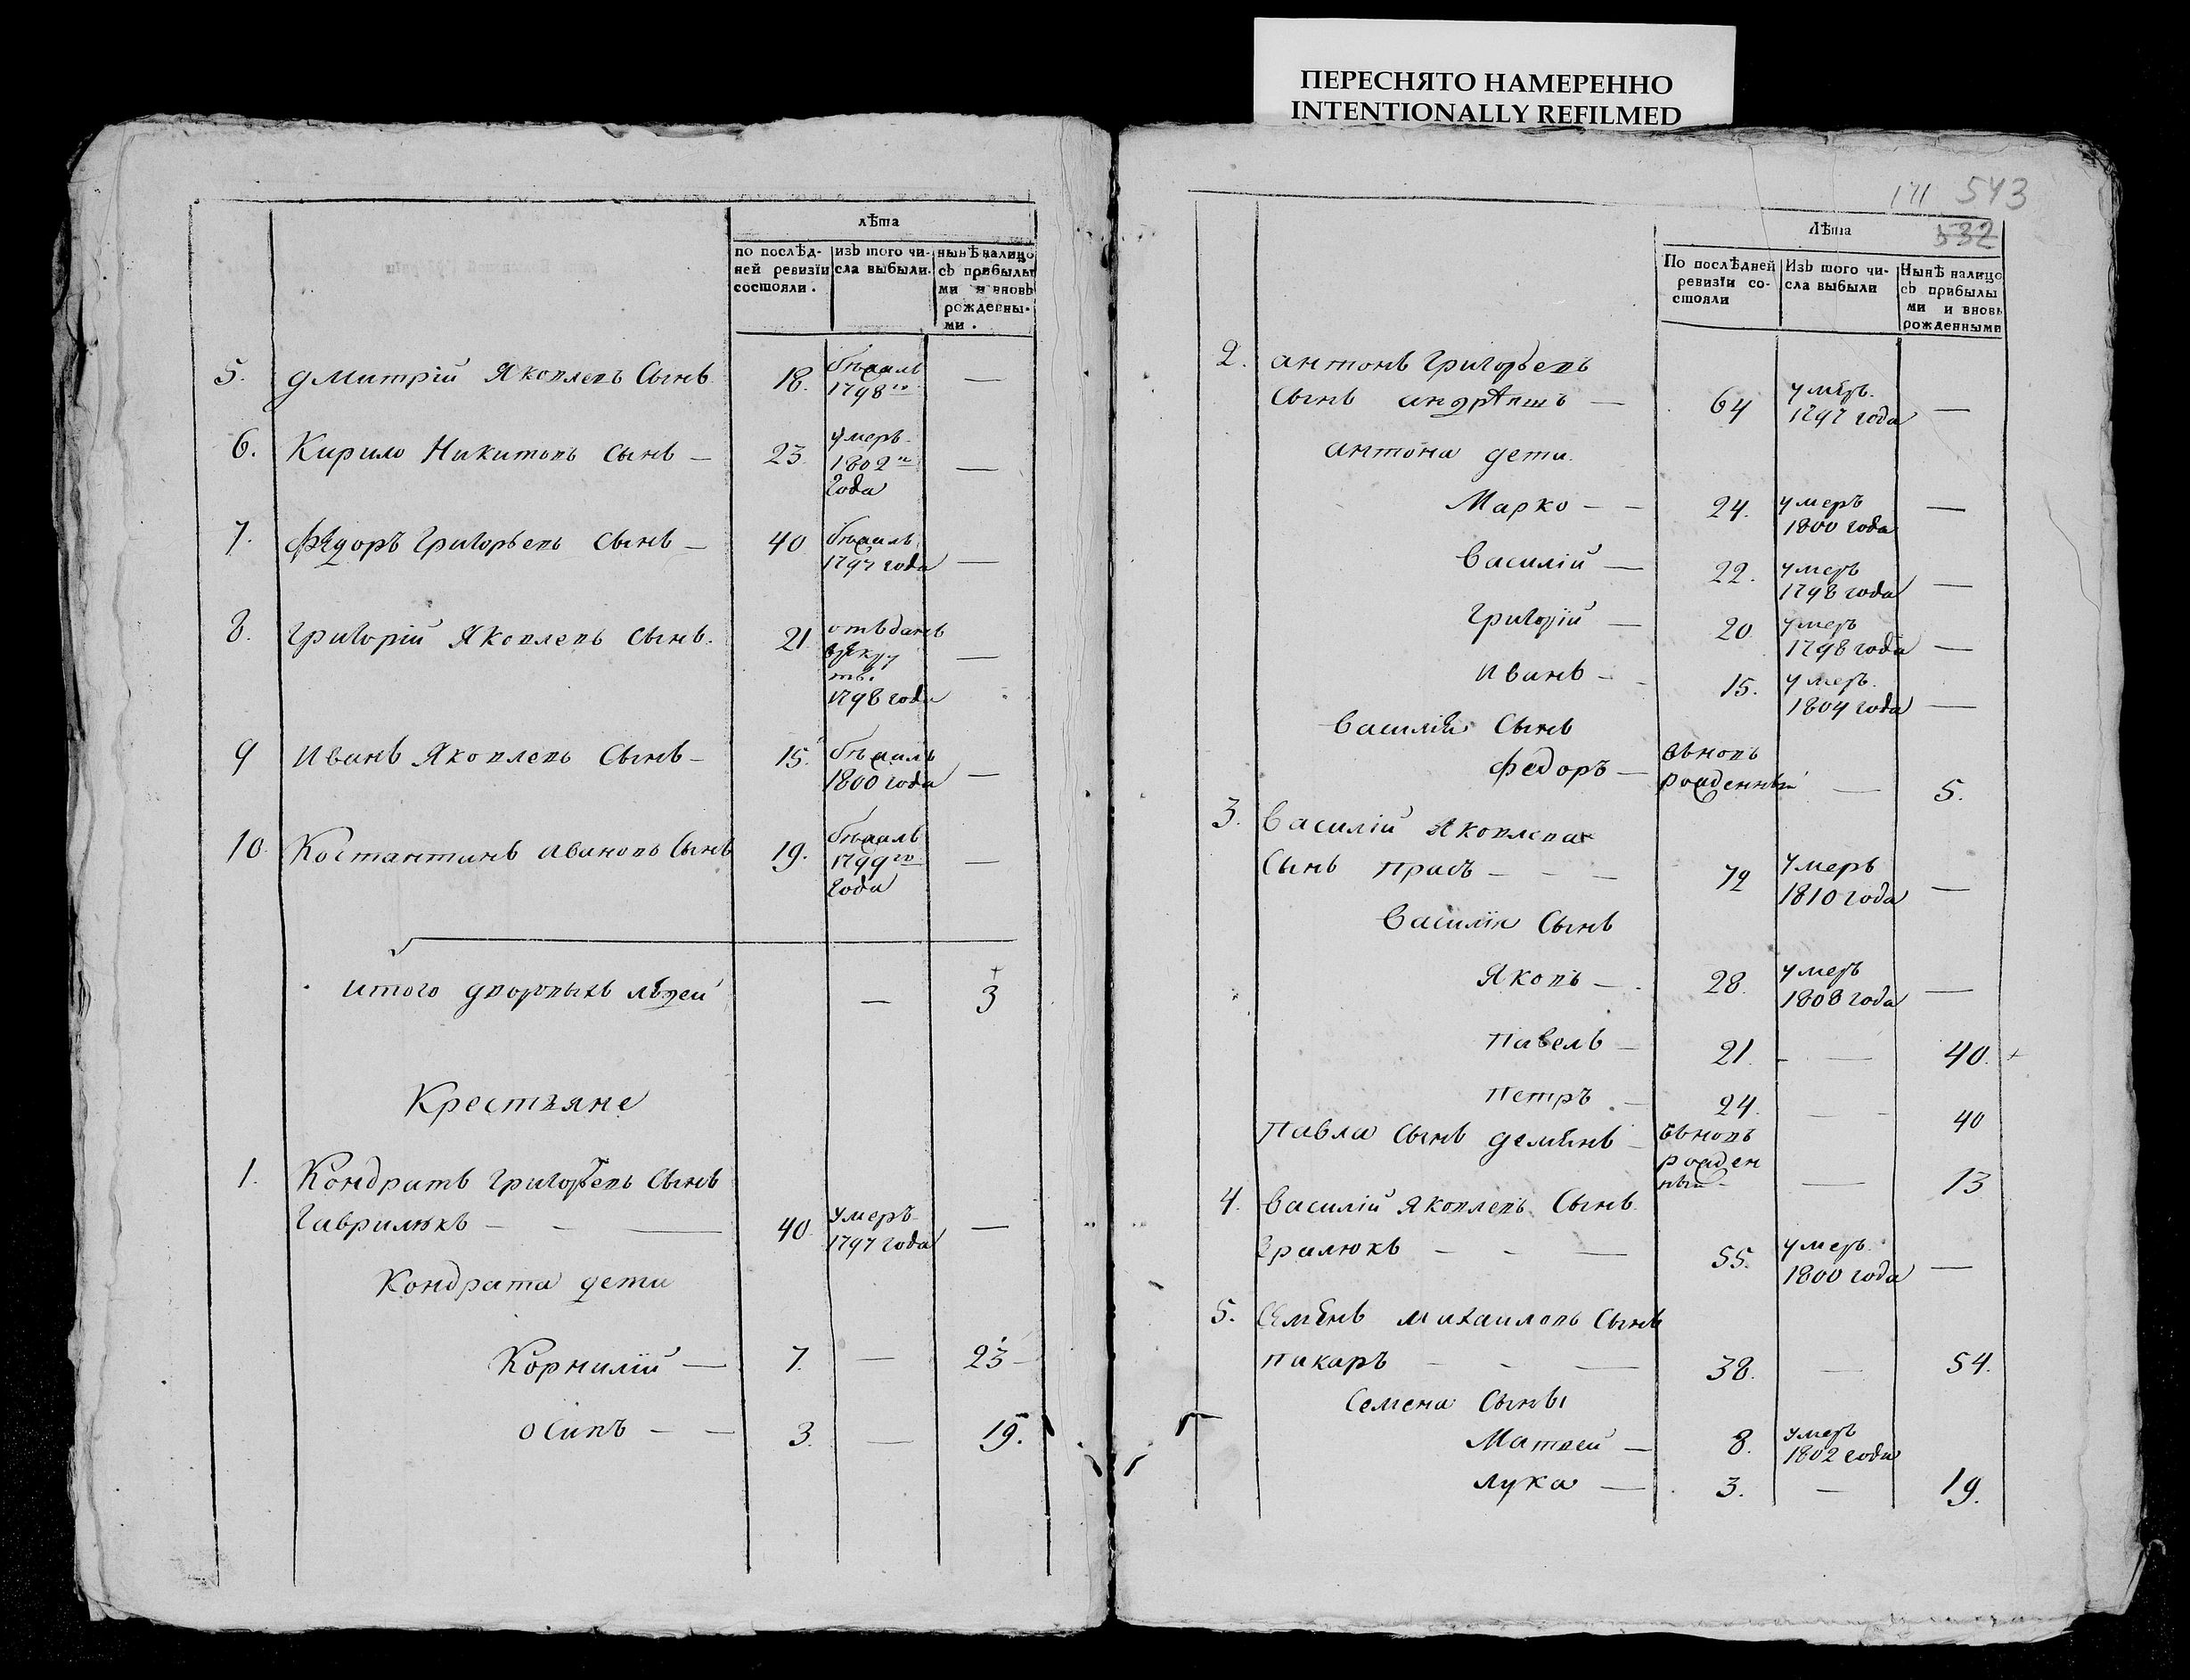 ПЕРЕСНЯТО НАМЕРЕННО
INTENTIONALLY REFILMED
лѣта
по послѣд-
ней ревизїи
состояли.
изъ того чи-
сла выбыли.
нынѣ налицо
съ прибылы
ми и вновь
рожденны-
ми.
5. Дмитрій Яковлевъ Сынъ 18. бѣжалъ
1798го —
6. Кирило Никитовъ сынъ — 23. умеръ
1802го —
года
7. Федоръ Григорьевъ сынъ — 40 бѣжалъ
1797 года —
8. Григорій Яковлевъ сынъ. 21. отъданъ
врекру
тъ.
1798 года —
9 Иванъ Яковлевъ Сынъ — 15. бѣжалъ
1800 года —
10. Костантинъ Ивановъ Сынъ 19. бѣжалъ
1799го —
года
Итого дворовыхъ людей — 3
Крестьяне
1. Кондратъ Григорьевъ Сынъ
Гаврилюкъ — — — 40 умеръ
1797 года —
Кондрата дети
Корнилій — 7. — 23
Осипъ — — 3. — 19.
171 543
532
Лѣта
По послѣдней
ревизїи со-
стояли
Изъ того чи-
сла выбыли
Нынѣ налицо
съ прибылы
ми и вновь
рожденными
2. Антонъ Григорьевъ
Сынъ — 64 умеръ
1797 года —
Антона дети
Марко — — 24. умеръ
1800 года —
Василій — 22. умеръ
1798 года —
Григорій — 20. умеръ
1798 года —
Иванъ — 15. умеръ
1804 года —
Василія Сынъ
Федоръ — вьновъ
рожденный — 5.
3. Василій Яковлева
Сынъ — — — 72 умеръ
1810 года —
Василія Сынъ
Яковъ — 28. умеръ
1808 года —
Павелъ — 21. — 40.
Петръ — 24. — 40
Павла сынъ Деміянъ — вьновъ
рожден
ный — 13
4. Василій Яковлевъ Сынъ
— — — 55. умеръ
1800 года —
5. Семенъ Михаиловъ Сынъ
Пикаръ — — — 38. — 54.
Семена Сыны
Матвей — 8. умеръ
1802 года
Лука — 3. — 19.